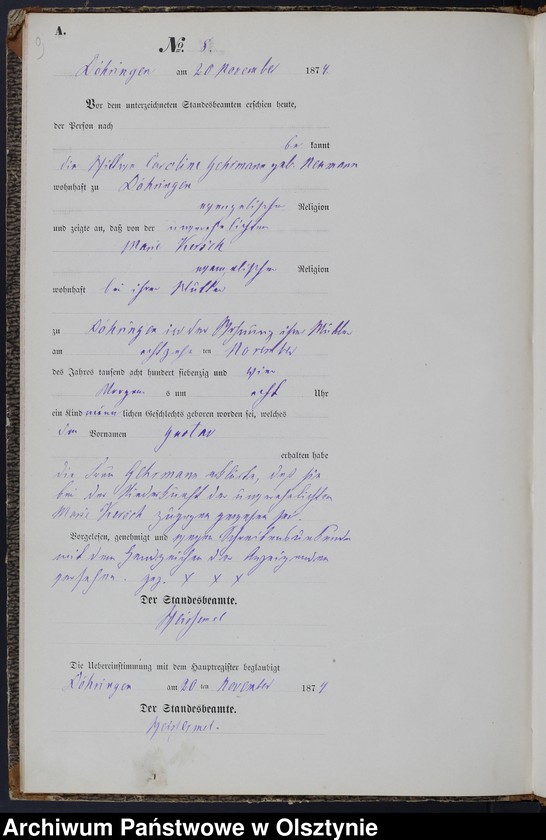 A.
No 8.
Döhringen am 20 November 1874.
Vor dem unterzeichneten Standesbeamten erschien heute,
der Person nach
be kannt
die Wittwe Caroline Gehrmann geb. Neumann
wohnhaft zu Döhringen
evangelischer Religion
und zeigte an, daß von der unverehelichten
Marie
evangelischer Religion
wohnhaft bei ihrer Mutter
zu Döhringen in der Wohnung ihrer Mutter
am achtzehn ten November
des Jahres tausend acht hundert siebenzig und vier
Morgen s um acht Uhr
ein Kind männ lichen Geschlechts geboren worden sei, welches
den Vornamen Gustav
erhalten habe
die Frau Gehrmann erklärte, daß sie
bei der Niederkunft der unverehelichten
Marie zugegen gewesen sei.
Vorgelesen, genehmigt und wegen
mit dem Handzeichen der Anzeigenden
versehen. gez. X X X
Der Standesbeamte.
Die Uebereinstimmung mit dem Hauptregister beglaubigt
Döhringen am 20 ten November 1874
Der Standesbeamte.
Archiwum Państwowe w Olsztynie